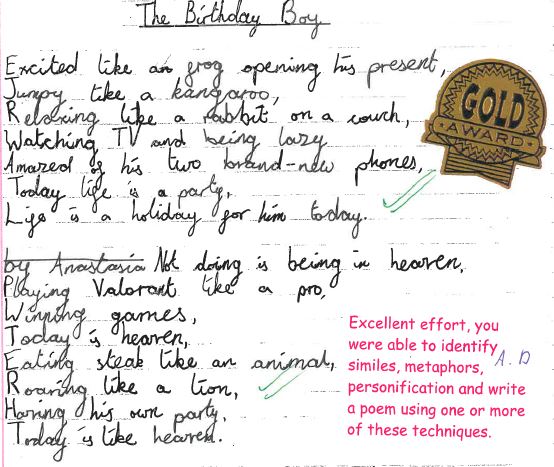 The Birthday Boy
Excited like an frog opening his present,
Jumpy like a kangaroo,
Relaxing like a rabbit on a couch,
Watching TV and being lazy
Amazed of his two brand-new phones,
Today life is a party,
Life is a holiday for him today.
GOLD
AWARD
by Anastasia Not doing is being in heaven,
Playing Valorant like a pro,
Winning games,
Today is heaven,
Eating steak like an animal,
Roaring like a lion,
Having his own party,
Today is like heaven.
Excellent effort, you
were able to identify
similes, metaphors, A.D
personification and write
a poem using one or more
of these techniques.